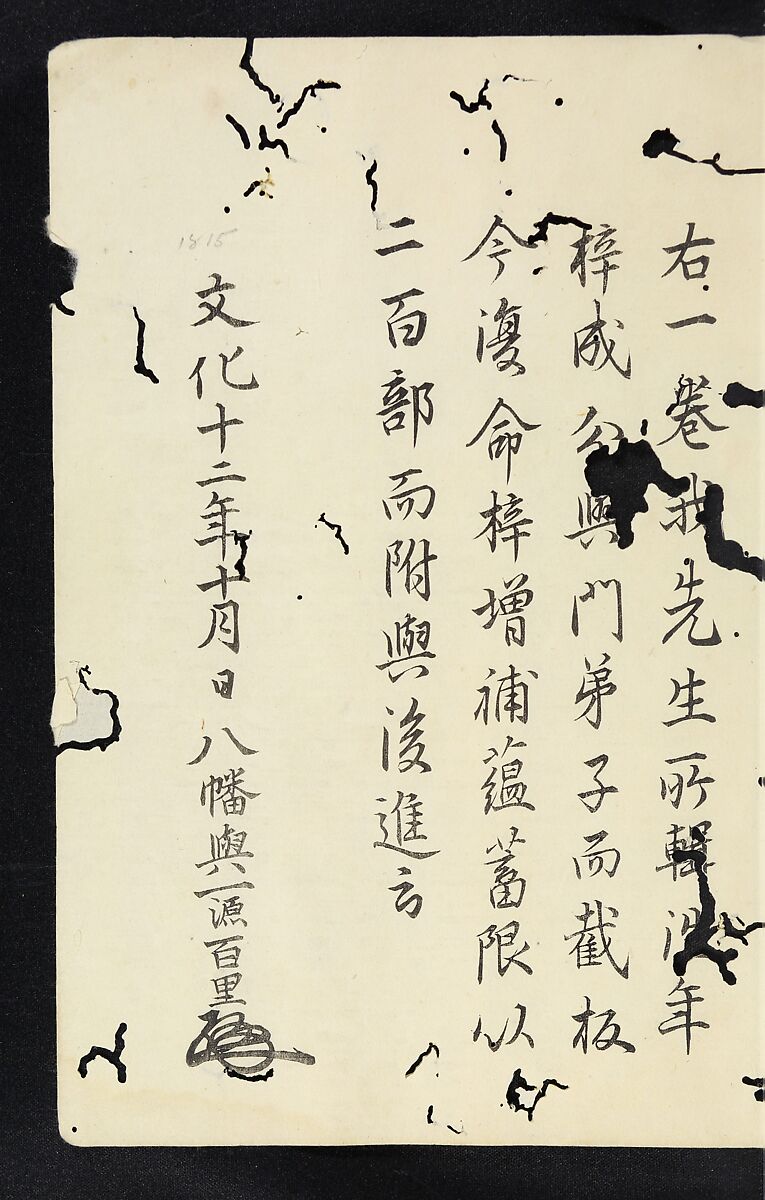 右一巻我先生所輯況年
梓成分與門弟子而截板
今復命梓増補蘊蓄限以
二百部而附與後進云
1815
文化十二年十月日八幡與一源百里